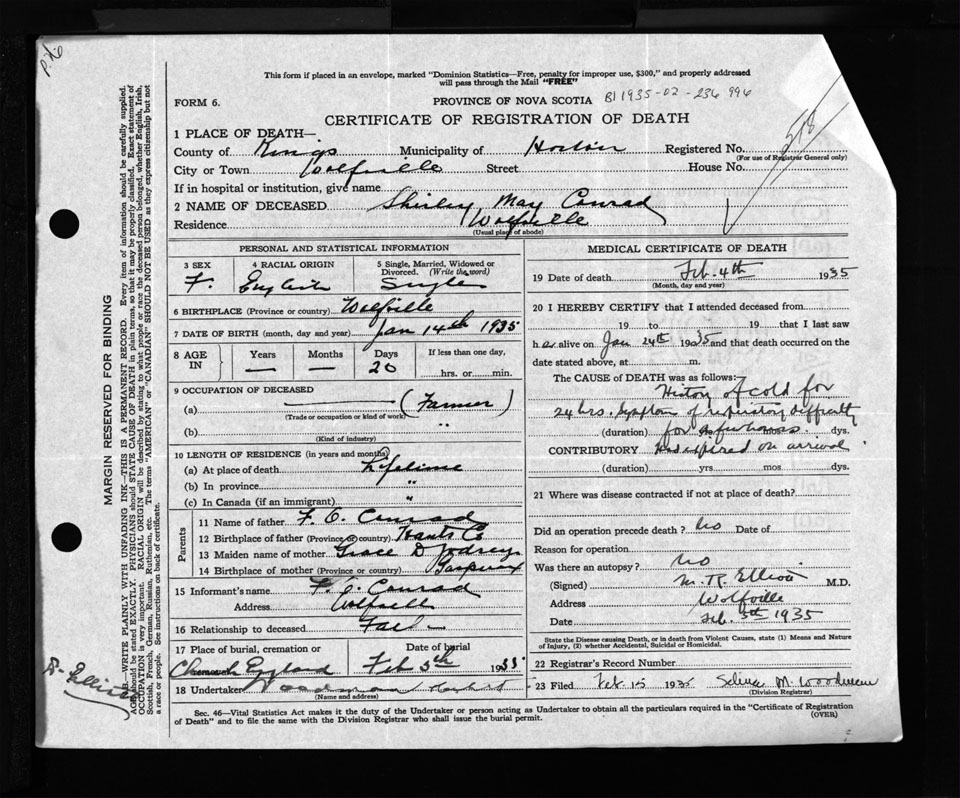 This form if placed in an envelope, marked "Dominion Statistics—Free, penalty for improper use, $300," and properly addressed
will pass through the Mail "FREE"
FORM 6.
PROVINCE OF NOVA SCOTIA
B1 1935-02-236 996
CERTIFICATE OF REGISTRATION OF DEATH
518
1 PLACE OF DEATH—
County of Kings Municipality of Horton Registered No.
(For use of Registrar General only)
City or Town Wolfville Street House No.
If in hospital or institution, give name
2 NAME OF DECEASED Shirley May Conrad
Residence Wolfville
(Usual place of abode)
PERSONAL AND STATISTICAL INFORMATION
3 SEX
F.
4 RACIAL ORIGIN
English
5 Single, Married, Widowed or
Divorced. (Write the word)
Single
6 BIRTHPLACE (Province or country) Wolfville
7 DATE OF BIRTH (month, day and year) Jan 14th 1935
8 AGE IN
Years Months Days If less than one day,
— — 20 hrs. or min.
9 OCCUPATION OF DECEASED
(a) (Farmer)
(Trade or occupation or kind of work)
(b) "
(Kind of industry)
10 LENGTH OF RESIDENCE (in years and months)
(a) At place of death Lifetime
(b) In province "
(c) In Canada (if an immigrant) "
Parents
11 Name of father F. C. Conrad
12 Birthplace of father (Province or country) Hants Co
13 Maiden name of mother Grace D Jodrey
14 Birthplace of mother (Province or country) Gaspereau
15 Informant's name F. C. Conrad
Address Wolfville
16 Relationship to deceased Father
17 Place of burial, cremation or Date of burial
Feb 5th 1935
18 Undertaker Woodman
(Name and address)
MEDICAL CERTIFICATE OF DEATH
19 Date of death Feb. 4th 1935
(Month, day and year)
20 I HEREBY CERTIFY that I attended deceased from
19 to 19 that I last saw
h er alive on Jan 24th 1935 and that death occurred on the
date stated above, at m.
The CAUSE OF DEATH was as follows:—
History of cold for
24 hrs. Symptoms of respiratory difficulty
(duration) for a few hours. dys.
CONTRIBUTORY Had expired on arrival
(duration) yrs mos dys.
21 Where was disease contracted if not at place of death?
Did an operation precede death? No Date of
Reason for operation
Was there an autopsy? No
(Signed) M. R. Elliott M.D.
Address Wolfville
Date Feb. 5th 1935
State the Disease causing Death, or in death from Violent Causes, state (1) Means and Nature
of Injury, (2) whether Accidental, Suicidal or Homicidal.
22 Registrar's Record Number
23 Filed Feb. 15 1935 M. Woodman
(Division Registrar)
Sec. 46—Vital Statistics Act makes it the duty of the Undertaker or person acting as Undertaker to obtain all the particulars required in the "Certificate of Registration
of Death" and to file the same with the Division Registrar who shall issue the burial permit.
(OVER)
MARGIN RESERVED FOR BINDING
N.B.—WRITE PLAINLY WITH UNFADING INK—THIS IS A PERMANENT RECORD. Every item of information should be carefully supplied.
AGE should be stated EXACTLY. PHYSICIANS should STATE CAUSE OF DEATH in plain terms, so that it may be properly classified. Exact statement of
OCCUPATION is very important. RACIAL ORIGIN will be described by stating to what people or race the deceased person belonged, whether English, Irish,
Scottish, French, German, Russian, Ruthenian, etc. The terms "AMERICAN" or "CANADIAN" SHOULD NOT BE USED as they express citizenship but not
a race or people. See instructions on back of certificate.
Dr. Elliott